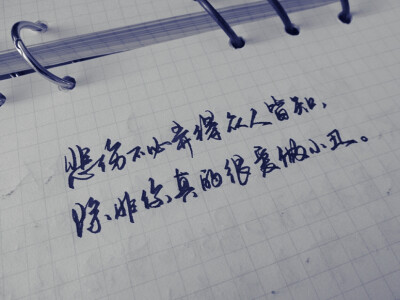 悲伤不必弄得众人皆知，
除非你真的很爱做小丑。